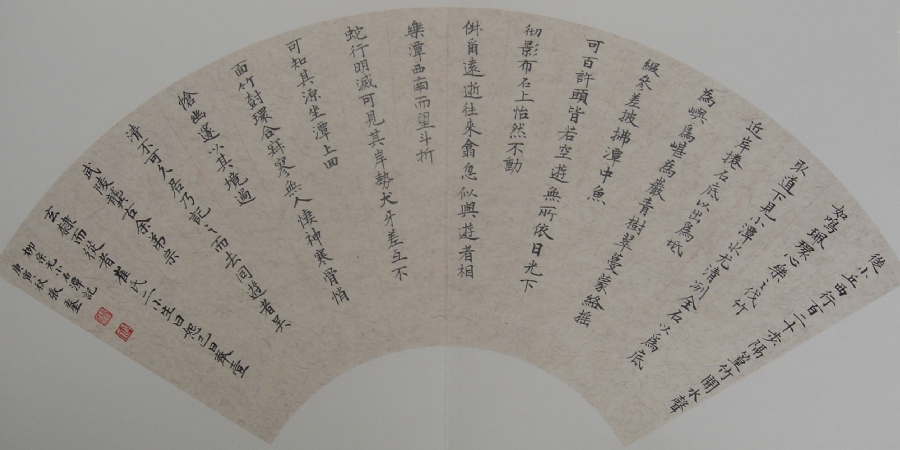 後小丘西行百二十步隔篁竹聞水聲
如鳴珮環心樂之伐竹
取道下見小潭水尤清冽全石以為底
近岸捲石底以出為坻
為嶼為嵁為巖青樹翠蔓蒙絡搖
綴參差披拂潭中魚
可百許頭皆若空遊無所依日光下
彻影布石上怡然不動
俶爾遠逝往來翕忽似與遊者相
樂潭西南而望斗折
蛇行明滅可見其岸勢犬牙差互不
可知其源坐潭上四
面竹树環合寂寥無人淒神寒骨悄
愴幽邃以其境過
清不可久居乃記之而去同遊者吳
武陵龔古余弟宗
玄隸而從者崔氏二小生曰恕己曰奉壹
柳宗元小石潭記
庚寅秋張